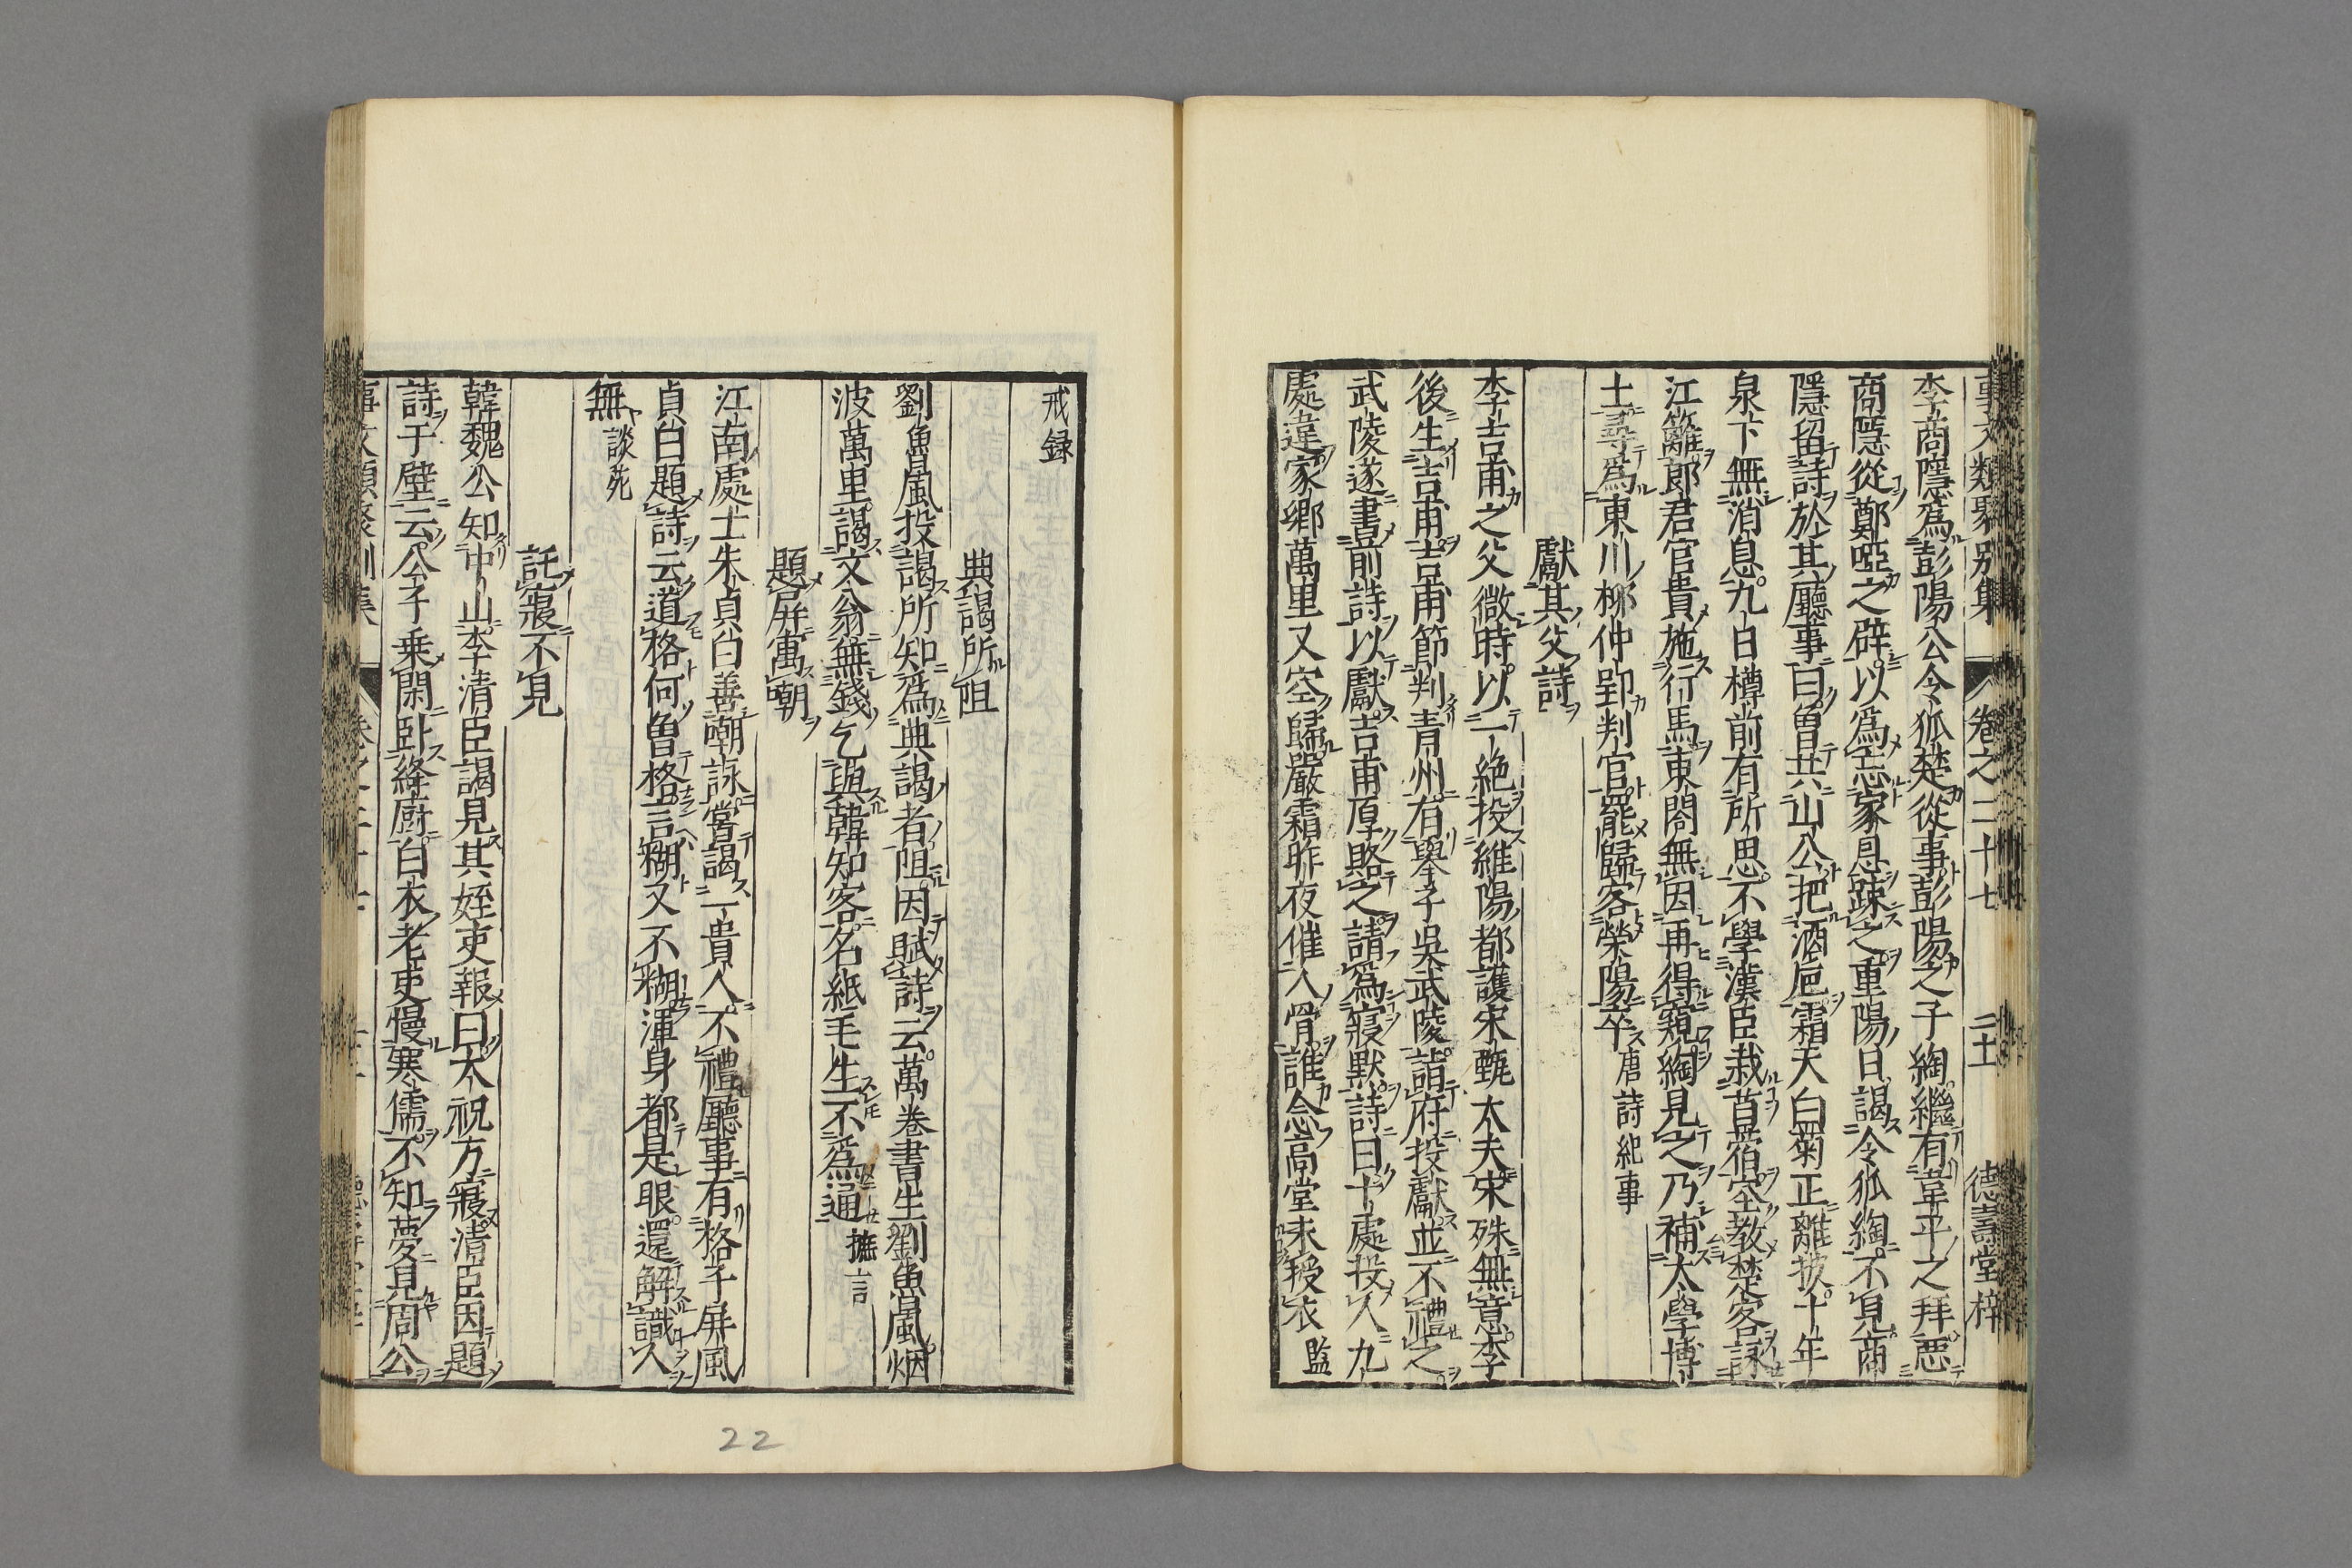 事文類聚別集 卷之二十七 二十 德壽堂梓
李商隱爲彭陽公令狐楚從事彭陽之子綯繼有韋平之拜惡
商隱從鄭啞之辟以爲忘家恩踈之重陽日謁令狐綯不見商
隱留詩於其廳事曰曽共山公把酒巵霜天白菊正離披十年
泉下無消息九日樽前有所思不學漢臣栽苜蓿空教楚客詠
江籬郎君官貴施行馬東閤無因再得窺綯見之乃補太學博
士尋爲東川柳仲郢判官罷歸客榮陽卒唐詩紀事
獻其父詩
李吉甫之父微時以一絶投維陽都護宋甄太夫宋殊無意李
後生吉甫吉甫節判青州有舉子吳武陵詣府投獻並不禮之
武陵遂書前詩以獻吉甫厚賂之請爲寢默詩曰十處投人九
處違家鄉萬里又空歸嚴霜昨夜催人骨誰念高堂未授衣 監
戒録
典謁所阻
劉魯風投謁所知爲典謁者阻因賦詩云萬卷書生劉魯風烟
波萬里謁文翁無錢乞與韓知客名紙毛生不爲通摭言
題屏寓嘲
江南處士朱貞白善嘲詠嘗謁一貴人不禮廳事有格子屏風
貞白題詩云道格何曽格言糊又不糊渾身都是眼還解識人
無談苑
託寢不見
韓魏公知中山李清臣謁見其姪吏報曰太祝方寢清臣因題
詩于壁云公子乗閑臥絳厨白衣老吏慢寒儒不知夢見周公